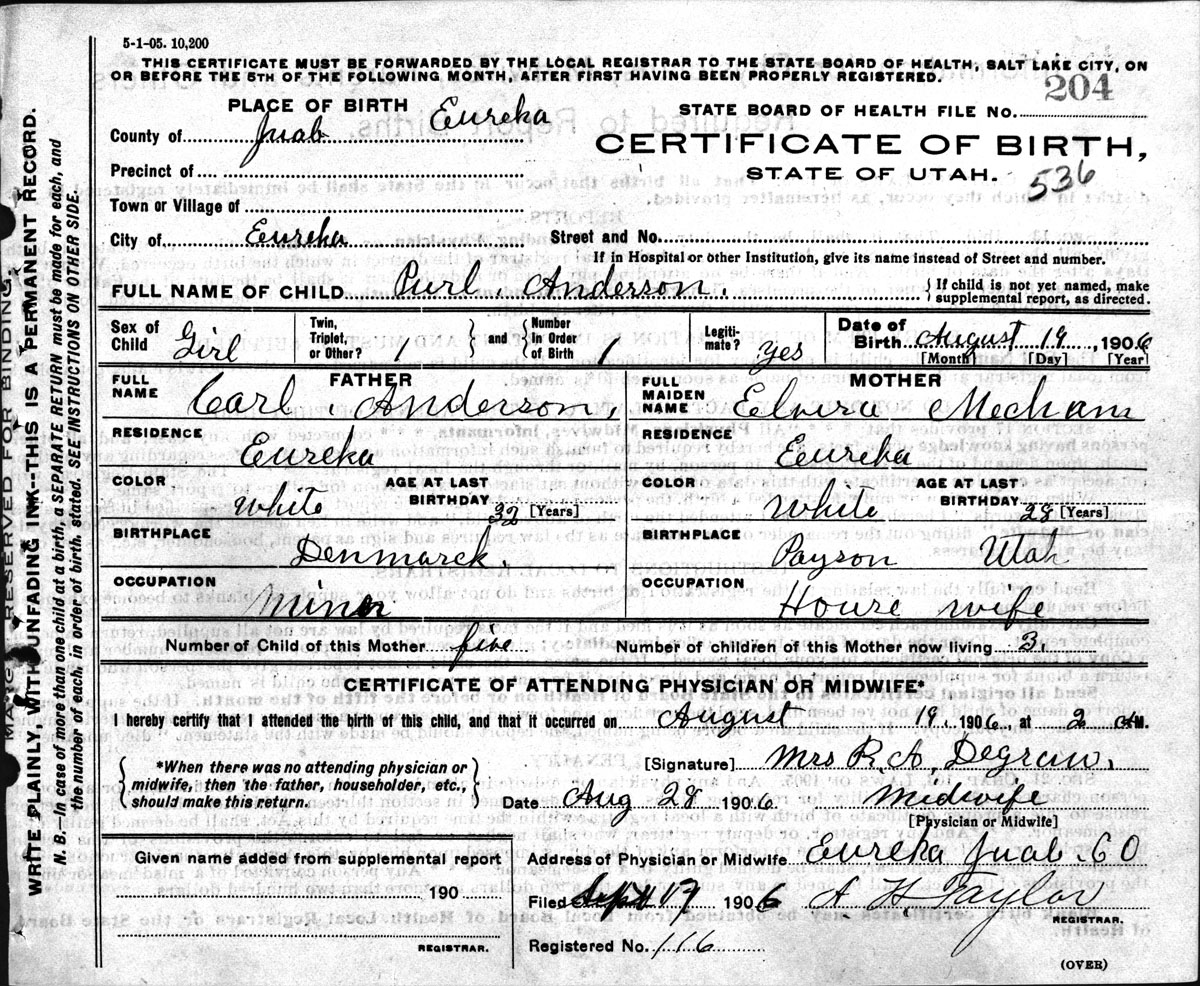 5-1-05. 10,200
THIS CERTIFICATE MUST BE FORWARDED BY THE LOCAL REGISTRAR TO THE STATE BOARD OF HEALTH, SALT LAKE CITY, ON
OR BEFORE THE 5TH OF THE FOLLOWING MONTH, AFTER FIRST HAVING BEEN PROPERLY REGISTERED.
204
PLACE OF BIRTH Eureka
STATE BOARD OF HEALTH FILE No.
County of Juab
CERTIFICATE OF BIRTH,
STATE OF UTAH.
536
Precinct of
Town or Village of
City of Eureka Street and No.
If in Hospital or other Institution, give its name instead of Street and number.
FULL NAME OF CHILD Purl Anderson. {If child is not yet named, make supplemental report, as directed.
Sex of Child Girl Twin, Triplet, or Other? 1 } and { Number in Order of Birth Legiti-mate? yes Date of Birth August 19, 1906
[Month] [Day] [Year]
FATHER MOTHER
FULL NAME Carl Anderson, FULL MAIDEN NAME Elvira Mecham
RESIDENCE Eureka RESIDENCE Eureka
COLOR White AGE AT LAST BIRTHDAY 32 [Years] COLOR White AGE AT LAST BIRTHDAY 28 [Years]
BIRTHPLACE Denmarck. BIRTHPLACE Payson Utah
OCCUPATION Miner OCCUPATION House wife
Number of Child of this Mother five Number of children of this Mother now living 3.
CERTIFICATE OF ATTENDING PHYSICIAN OR MIDWIFE*
I hereby certify that I attended the birth of this child, and that it occurred on August 19, 1906, at 2 AM.
{*When there was no attending physician or midwife, then the father, householder, etc., should make this return.}
[Signature] Mrs R. A. Degraw.
Date Aug 28 1906 Midwife
[Physician or Midwife]
Given name added from supplemental report
190
REGISTRAR.
Address of Physician or Midwife Eureka Juab. CO
Filed Sept 17 1906 A H. Taylor
REGISTRAR.
Registered No. 116
(OVER)
MARGIN RESERVED FOR BINDING.
WRITE PLAINLY, WITH UNFADING INK--THIS IS A PERMANENT RECORD.
N. B.—In case of more than one child at a birth, a SEPARATE RETURN must be made for each, and
the number of each, in order of birth, stated. SEE INSTRUCTIONS ON OTHER SIDE.